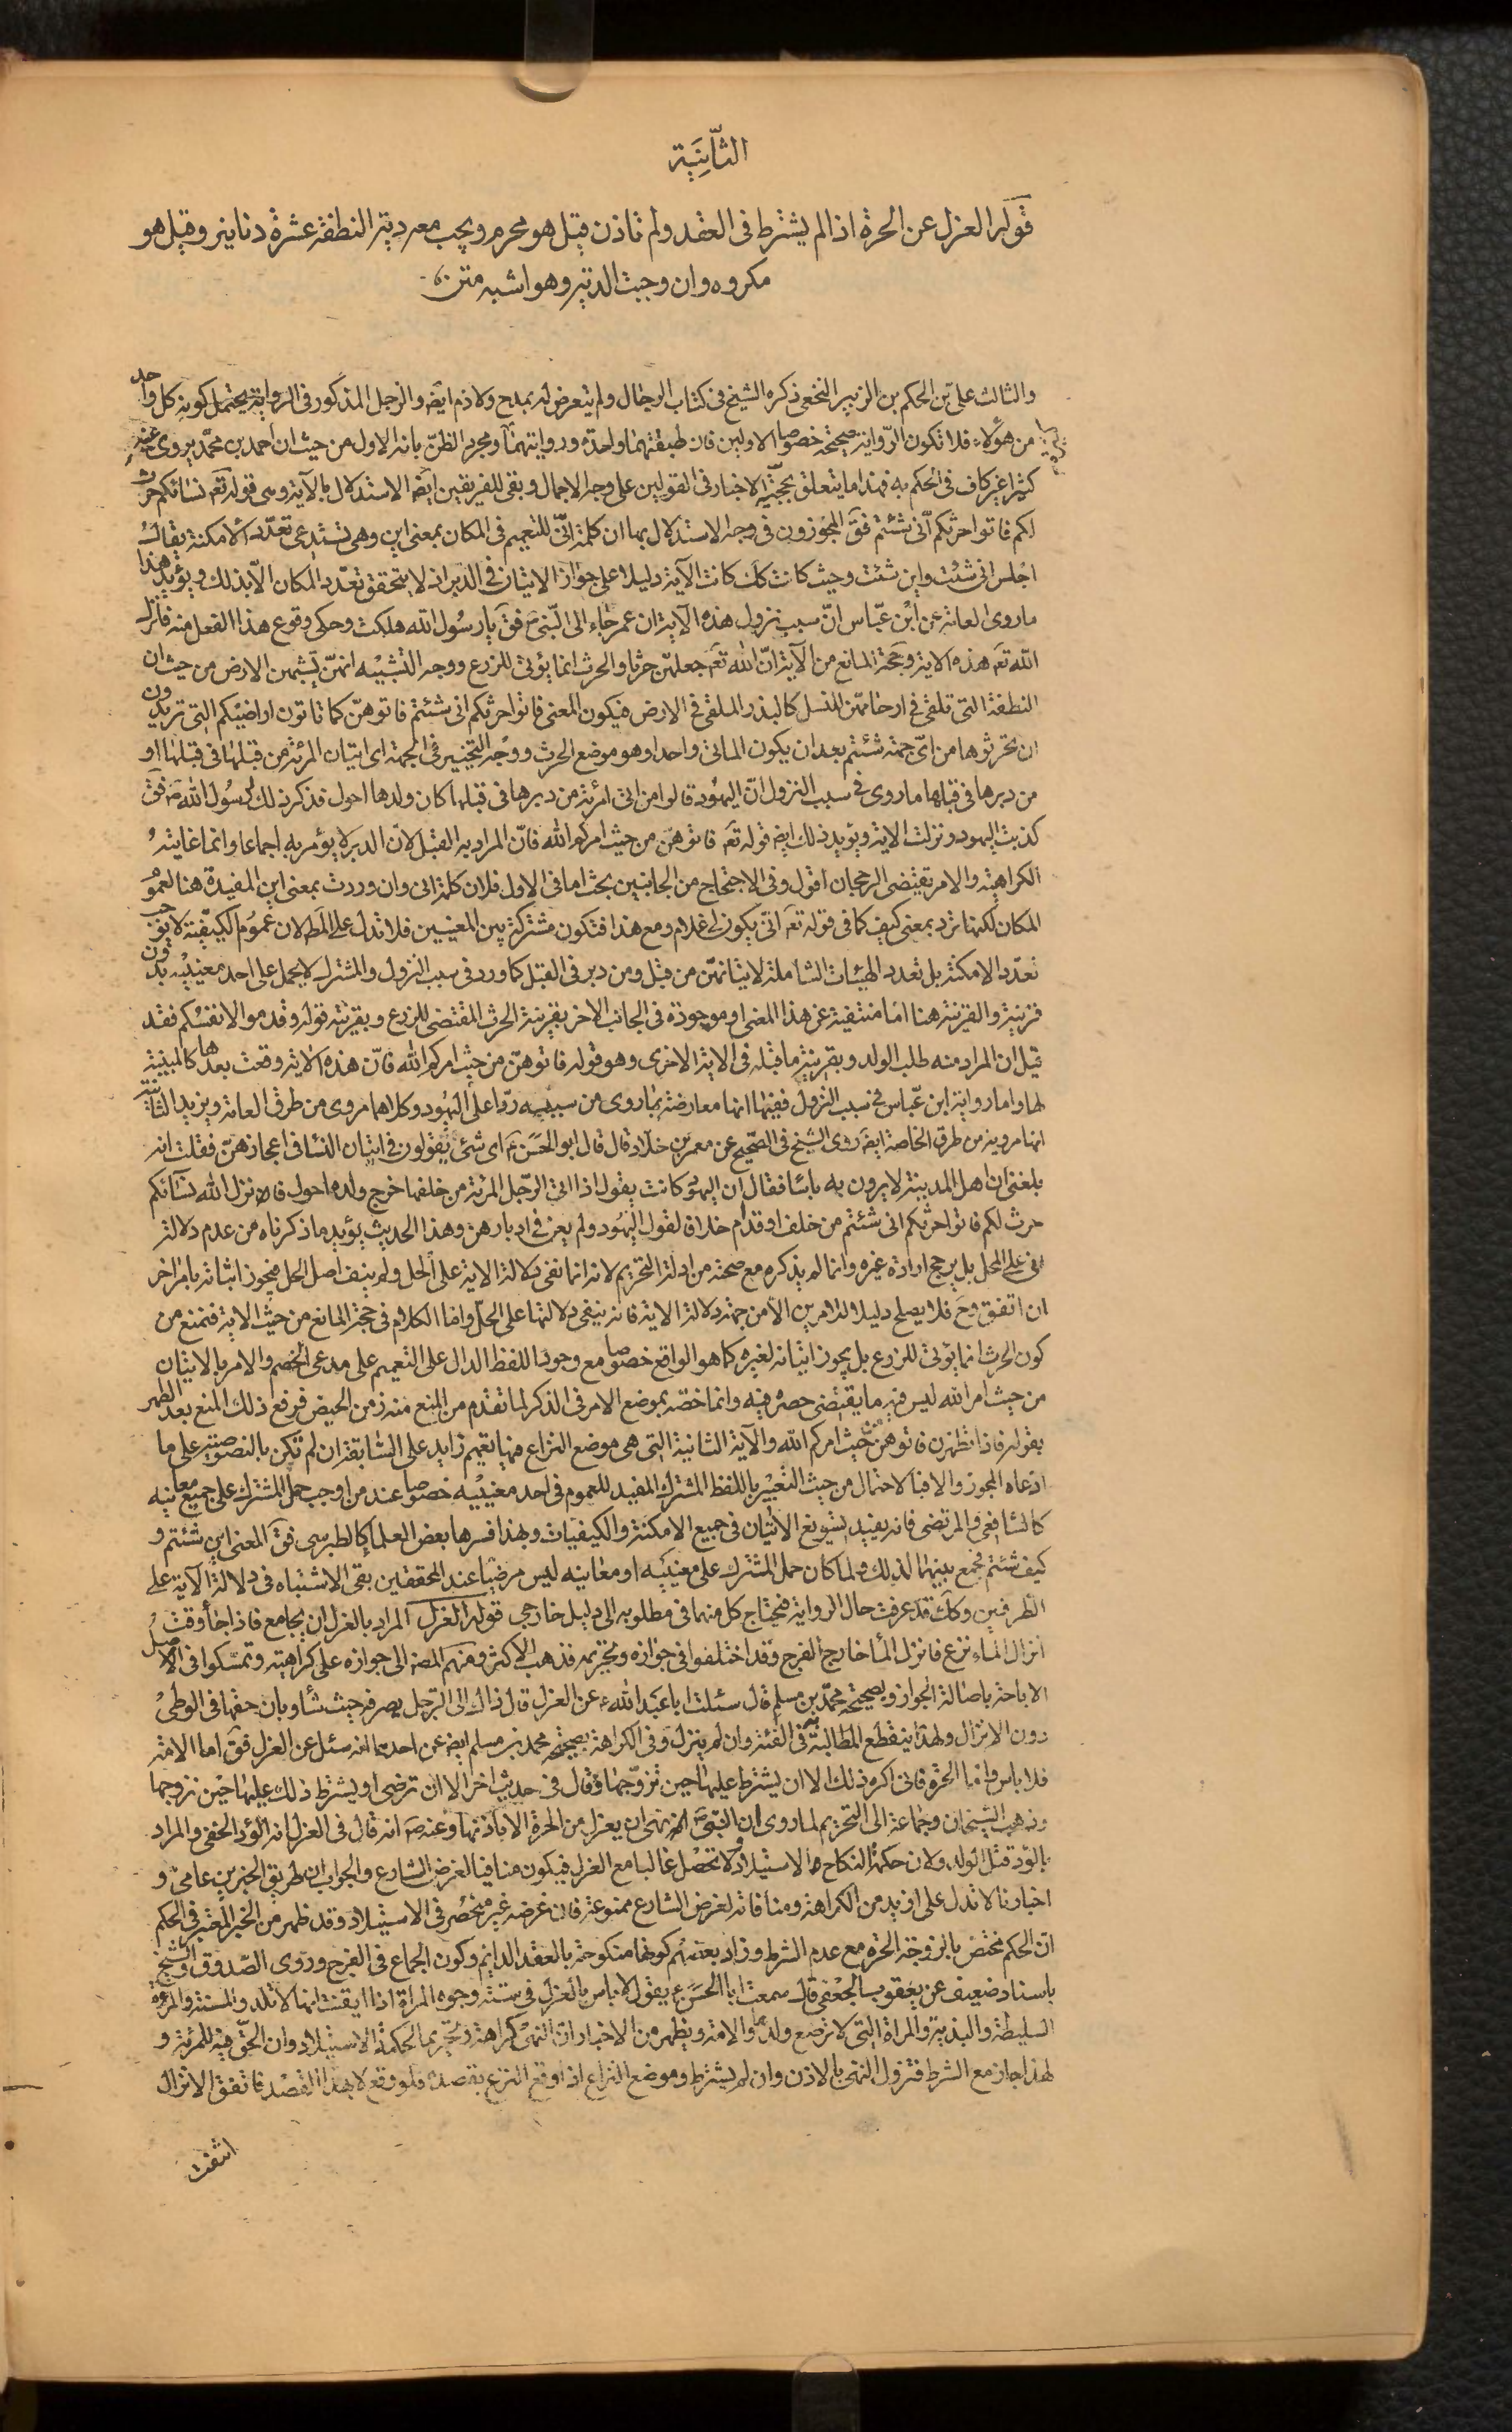 الثَّانِيَة
قوله العزل عن الحرة اذا لم يشترط فى العقد ولم تاذن قيل هو محرم ويجب معه دية النطفة عشرة دنانير وقيل هو
مكروه وان وجبت الدية وهو اشبه متن
والثالث على بن الحكم بن الزبير النخعى ذكره الشيخ فى كتاب الرجال ولم يتعرض له بمدح ولا ذم ايضه والرجل المذكور فى الرواية يحتمل كونه كل واحد
من هؤلاء فلا تكون الرواية صحيحة خصوصا الاولين فان طبقتهما واحدة وروايتهما ومجرد الظن بانه الاول من حيث ان احمد بن محمد يروى عنه
كثيرا غير كاف فى الحكم به فهذا ما يتعلق بحجية الاخبار فى القولين على وجه الاجمال وبقى للفريقين ايضه الاستدلال بالآية وهى قوله تعه نسائكم حرث
لكم فاتوا حرثكم انّى شئتم فقَ المجوزون فى وجه الاستدلال بها ان كلمة انّى للتعميم فى المكان بمعنى اين وهى تستدعى تعدّد الامكنة يقال
اجلس انى شئت واين شئت وحيث كانت كك كانت الآية دليلا على جواز الاتيان فى الدبر اذ لا يتحقق تعدد المكان الّا بذلك ويؤيد هذا
ما روى العامة عن ابن عبّاس انّ سبب نزول هذه الآية ان عمر جاء الى النّبىّ ص فقَ يا رسول الله هلكت وحكى وقوع هذا الفعل منه فانزل
الله تعه هذه الاية وحجة المانع من الآية انّ الله تعه جعلهنّ حرثا والحرث انما يؤتى للزرع ووجه التشبيه انهنّ يشبهن الارض من حيث ان
النطفة التى تلقى فى ارحامهن للنسل كالبذر الملقى فى الارض فيكون المعنى فاتوا حرثكم انى شئتم فاتوهنّ كما تاتون اراضيكم التى تريدون
ان تحرثوها من اىّ جهة شئتم بعد ان يكون الماتى واحدا وهو موضع الحرث ووجه التخيير فى الجهة اى اتيان المرئة من قبلها فى قبلها او
من دبرها فى قبلها ما روى فى سبب النزول انّ اليهود قالوا من اتى امرئة من دبرها فى قبلها كان ولدها احول فذكر ذلك لرسول الله ص فقَ
كذبت اليهود ونزلت الاية ويؤيد ذلك ايضه قوله تعه فاتوهنّ من حيث امركم الله فانّ المراد به القبل لانّ الدبر لا يؤمر به اجماعا وانما غايته
الكراهية والامر يقتضى الرجحان اقول وفى الاحتجاج من الجانبين بحث اما فى الاول فلان كلمة انى وان وردت بمعنى اين المفيدة هنا لعموم
المكان لكنها ترد بمعنى كيف كما فى قوله تعه انّى يكون لى غلام ومع هذا فتكون مشتركة بين المعنيين فلا تدل على المط لان عموم الكيفيّة لا يوجب
تعدّد الامكنة بل تعدد الهيئات الشاملة لاتيانهنّ من قبل ومن دبر فى القبل كما ورد فى سبب النزول والمشترك لا يحمل على احد معنييه بدون
قرينة والقرينة هنا اما منتفية عن هذا المعنى او موجودة فى الجانب الاخر بقرينة الحرث المقتضى للزرع وبقرينة قوله وقدموا لانفسكم فقد
قيل ان المراد منه طلب الولد وبقرينة ما قبله فى الاية الاخرى وهو قوله فاتوهنّ من حيث امركم الله فانّ هذه الاية وقعت بعدها كالمبينة
لها واما رواية ابن عبّاس فى سبب النزول ففيها انها معارضة بما روى من سببيه ردّا على اليهود وكلاهما مروى من طرق العامة ويزيد الثانية
انها مروية من طرق الخاصة ايضه روى الشيخ فى الصّحيح عن معمر بن خلاد قال قال ابو الحسن ع اى شئ يقولون فى اتيان النسا فى اعجازهنّ فقلت انه
بلغنى ان اهل المدينة لا يرون به باسا فقال ان اليهود كانت يقول اذا اتى الرّجل المرئة من خلفها خرج ولده احول فانزل الله نسآئكم
حرث لكم فاتوا حرثكم انى شئتم من خلف او قدام خلافا لقول اليهود ولم يعن فى ادبارهن وهذا الحديث يؤيد ما ذكرناه من عدم دلالة
انى على المحل بل يرجح ارادة غيره وانما لم يذكره مع صحته من ادلة التحريم لانه انما نفى دلالة الاية على الحل ولم ينف اصل الحل فيجوز اثباته بامر اخر
ان اتفق وحَ فلا يصلح دليلا لامرين الّا من جهة دلالة الاية فانه ينفى دلالتها على الحلّ واما الكلام فى حجة المانع من حيث الاية فنمنع من
كون الحرث انما يؤتى للزرع بل يجوز اتيانه لغيره كما هو الواقع خصوصا مع وجود اللفظ الدال على التعميم على مدعى الخصم والامر بالاتيان
من حيث امر الله ليس فيه ما يقتضى حصره فيه وانما خصّه بموضع الامر فى الذكر لما تقدم من المنع منه زمن الحيض فرفع ذلك المنع بعد الطهر
بقوله فاذا تطهرن فاتوهنّ من حيث امركم الله والآية الثانية التى هى موضع النزاع فيها تعميم زايد على السّابقة ان لم تكن بالنصوصية على ما
ادعاه المجوز والا فبالاحتمال من حيث التعبير باللفظ المشترك المفيد للعموم فى احد معنييه خصوصا عند من اوجب حمل المشترك على جميع معانيه
كالشافعى والمرتضى فانه يفيد تسويغ الاتيان فى جميع الامكنة والكيفيات وبهذا فسرها بعض العلما كالطبرسى فقَ المعنى اين شئتم و
كيف شئتم فجمع بينهما لذلك ولما كان حمل المشترك على معنييه او معانيه ليس مرضيّا عند المحققين بقى الاشتباه فى دلالة الآية على
الطرفين وكك قد عرفت حال الرواية فيحتاج كل منهما فى مطلوبه الى دليل خارجى قوله العزل المراد بالعزل ان يجامع فاذا جاء وقت
انزال الماء نزع فانزل الما خارج الفرج وقد اختلفوا فى جوازه وتحريمه فذهب الاكثر ومنهم المصه الى جوازه على كراهيته وتمسّكوا فى الاصل
الاباحة باصالة الجواز وبصحيحة محمّد بن مسلم قال سئلت ابا عبد الله ع عن العزل قال ذاك الى الرّجل يصرفه حيث شاء وبان حقها فى الوطى
دون الانزال ولهذا ينقطع المطالبة فى الفئة وان لم ينزل وفى الكراهة بصحيحة محمد بن مسلم ايضه عن احدهما انه سئل عن العزل فقَ اما الامة
فلا باس واما الحرة فانى اكره ذلك الا ان يشترط عليها حين تزوّجها وقال فى حديث اخر الا ان ترضى او يشترط ذلك عليها حين تزوجها
وذهب الشيخان وجماعة الى التحريم لما روى ان النبىّ ص نهى ان يعزل من الحرة الا باذنها وعنه ص انه قال فى العزل انه الوؤد الخفى والمراد
بالوؤد قتل الولد ولان حكمة النكاح الاستيلاد ولا تحصل غالبا مع العزل فيكون منافيا لغرض الشارع والجواب ان طريق الخبرين عامىّ و
اخبارنا لا تدل على ازيد من الكراهة ومنافاته لغرض الشارع ممنوعة فان غرضه غير منحصر فى الاستيلاد وقد ظهر من الخبر المعتبر فى الحكم
انّ الحكم مختص بالزوجة الحرة مع عدم الشرط وزاد بعضهم كونها منكوحة بالعقد الدايم وكون الجماع فى الفرج وروى الصّدوق والشيخ
باسناد ضعيف عن يعقوب الجعفى قال سمعت ابا الحسن ع يقول لا باس بالعزل فى ستة وجوه المراة اذا ايقنت انها لا تلد والمسنة والمرءة
السليطة والبذية والمراة التى لا ترضع ولدها والامة ويظهر من الاخبار انّ النهى كراهة وتحريما لحكمة الاستيلاد وان الحقّ فيه للمرئة و
لهذا جاز مع الشرط فتزول النهى بالاذن وان لم يشترط وموضع النزاع اذا وقع النزع بقصده فلو وقع لا بهذا القصد فاتفق الانزال
اتفقت